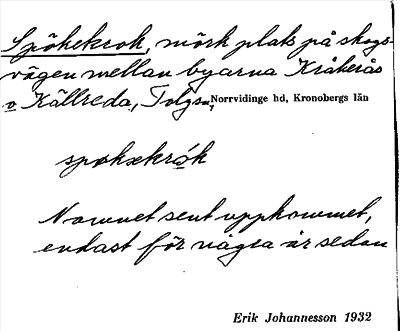 Spökekrok, mörk plats på skogs-
vägen mellan byarna Kråkerås
o Källreda, Tolgs sn, Norrvidinge hd, Kronobergs län
spøkækrók
Namnet sent uppkommet,
endast för några år sedan
Erik Johannesson 1932